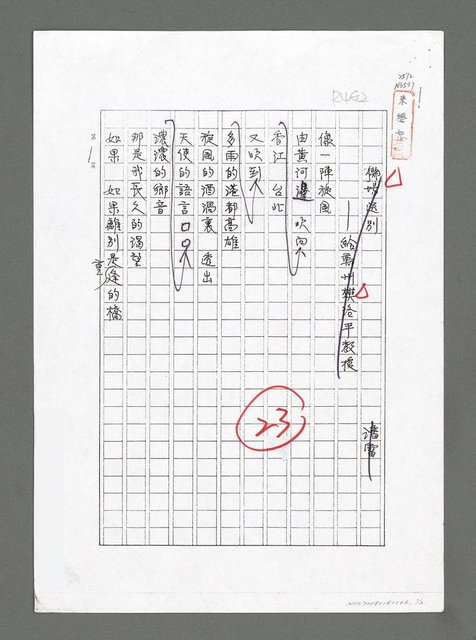 R492
2572
機場送別
——給鄭州樊洛平教授
潘雷
像一陣旋風
由黃河邊 吹向
香江 台北
又吹到
多雨的港都高雄
旋風的酒渦裏 透出
天使的語言
濃濃的鄉音
那是我長久的渴望
如果 如果離別是逢的橋
重
23